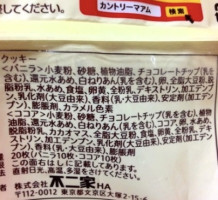 してください。
カントリーマアム 検索
クッキー
<バニラ>小麦粉、砂糖、植物油脂、チョコレートチップ(乳を
含む)、還元水あめ、白ねりあん(乳を含む)、卵、
脱脂粉乳、水あめ、食塩、卵黄、全粉乳、デキストリン、加工デン
プン、乳化剤(大豆由来)、香料(乳・大豆由来)、安定剤(加工デン
プン)、膨脹剤、カラメル色素
<ココア>小麦粉、砂糖、植物油脂、チョコレートチップ(乳を含
む)、還元水あめ、白ねりあん(乳を含む)、ココア、全卵、
脱脂粉乳、カカオマス、全脂大豆粉、水あめ、食塩、卵黄、全粉乳、
乳化剤(大豆由来)、加工デンプン、香料(乳・大豆由来)、安定剤
(加工デンプン)、膨脹剤
20枚(バニラ10枚・ココア10枚)
この面右はしに記載してあります。
直射日光、高温、多湿をおさけください。
株式会社 不二家 HA
〒112-0012 東京都文京区大塚2-15-6